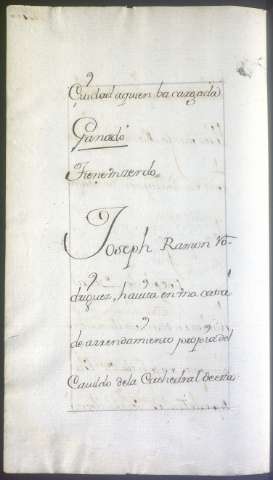 Ciudad aquien ba cargada
Ganado
Tiene un cerdo.
Joseph Ramon Ro-
driguez, havita en una casa
de arrendamiento propia del
Cavildo de la Cathedral de esta